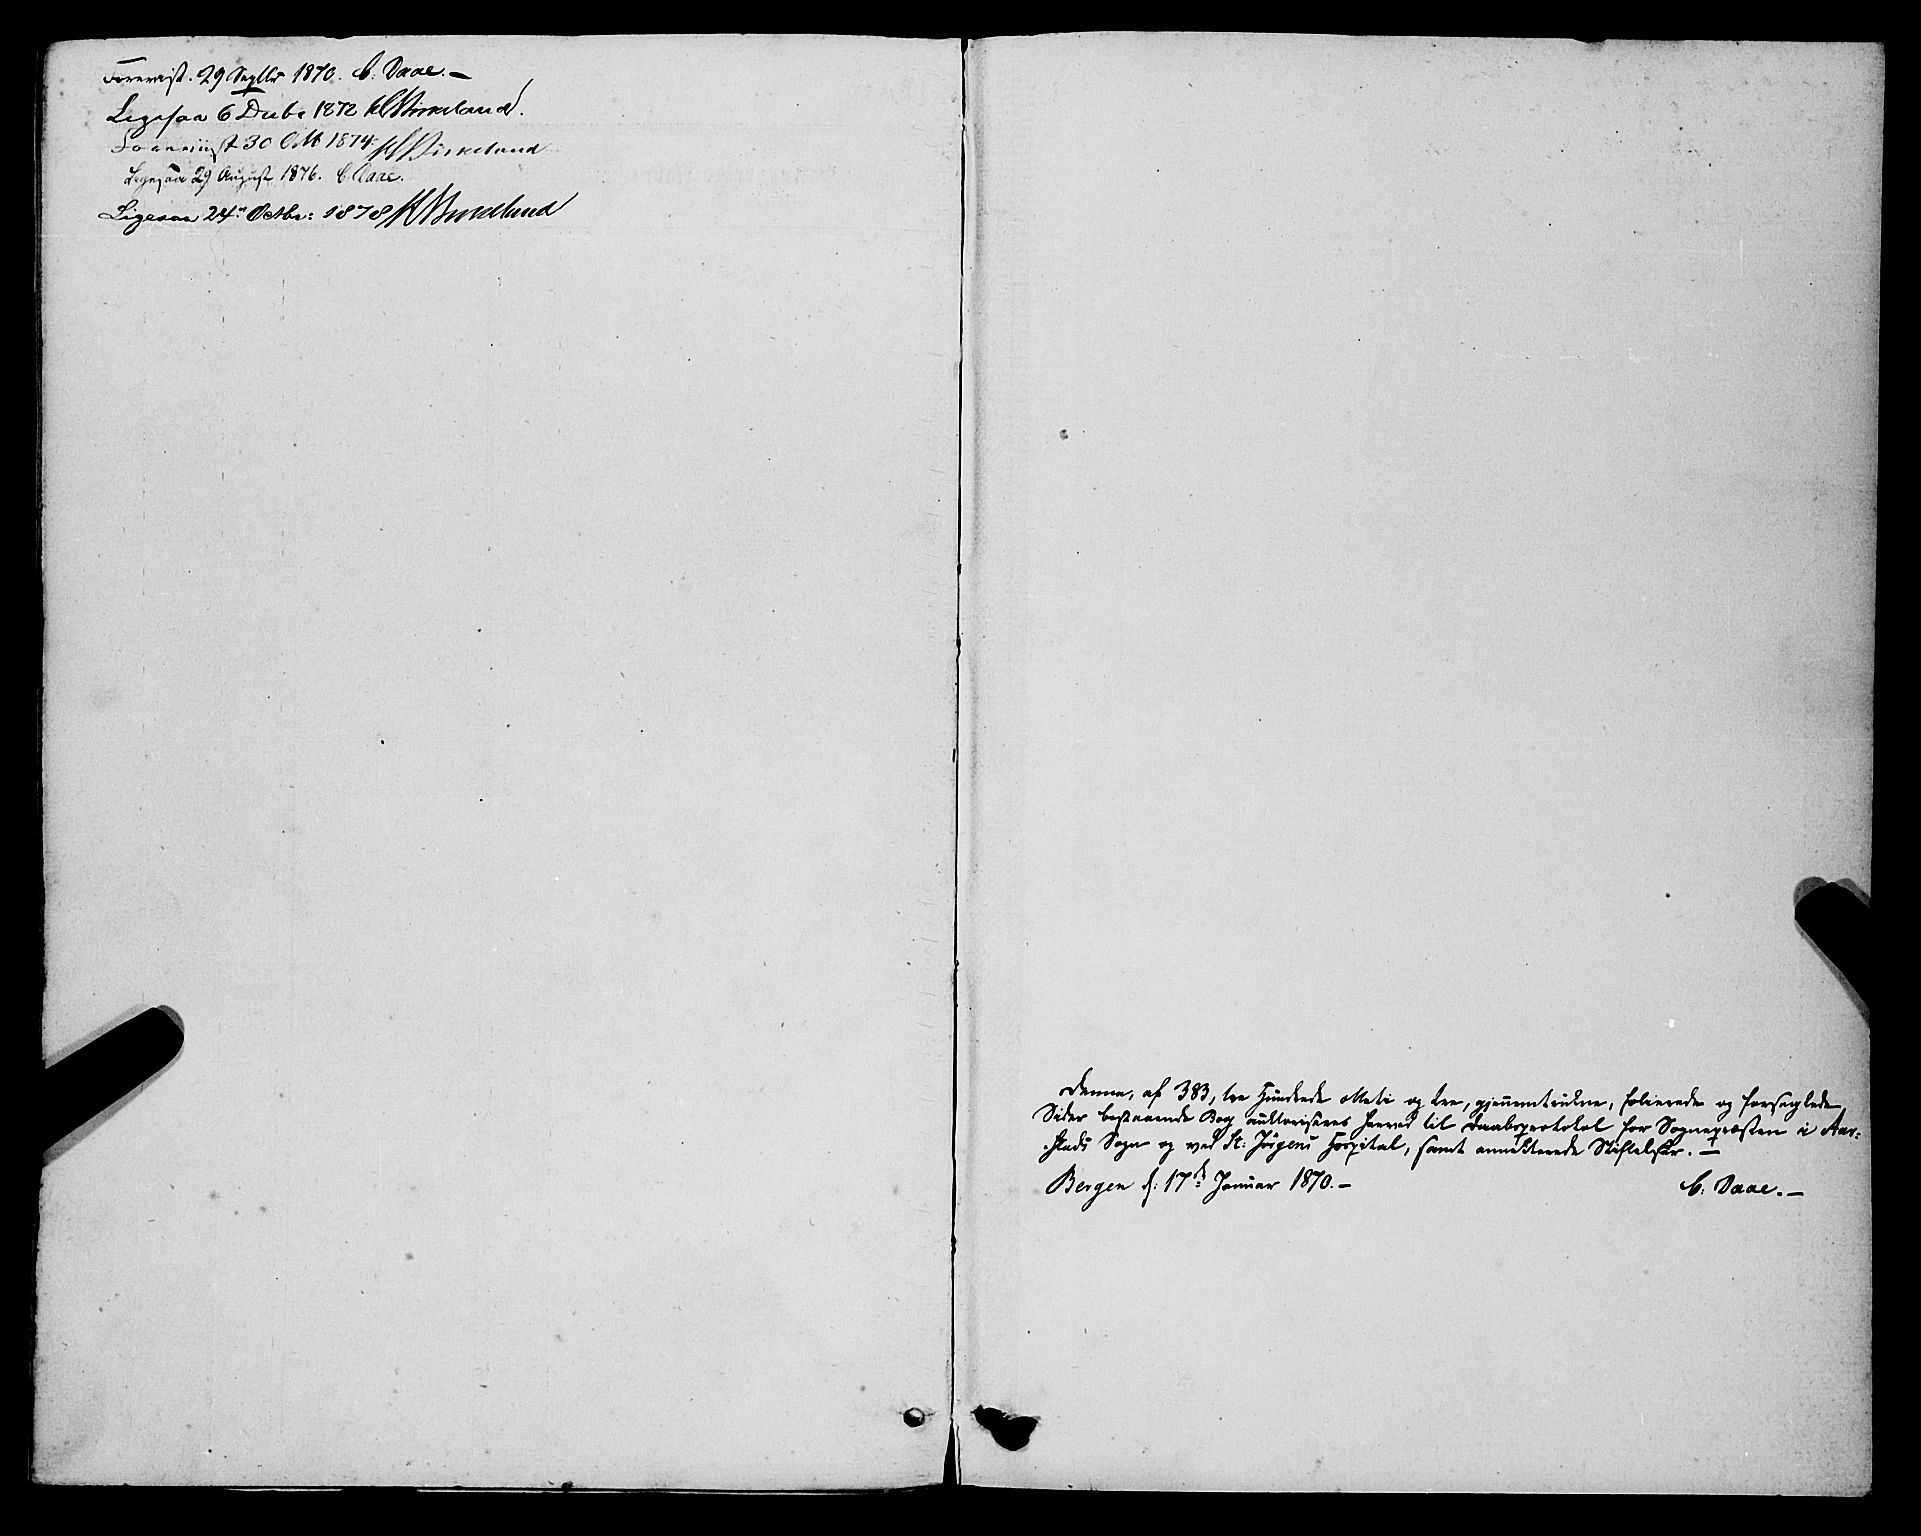 Forevist. 29 Septbr 1870. C: Daae.—
Ligesaa 6 Decbr 1872 Birkeland.
Forevist 30 Oct 1874. Birkeland
Ligesaa 29 August 1876. C. Daae.
Ligesaa 24de Octbr: 1878 Birkeland
Denne, af 383, tre Hundrede otteti og tre, gjennemtrukne, folierede og forseglede
Sider bestaaende Bog authoriseres herved til Daabsprotokol for Sognepræsten i Aar-
stads Sogn og ved St: Jörgens Hospital, samt annekterede Stiftelser.—
Bergen d: 17de Januar 1870.—
C: Daae.—